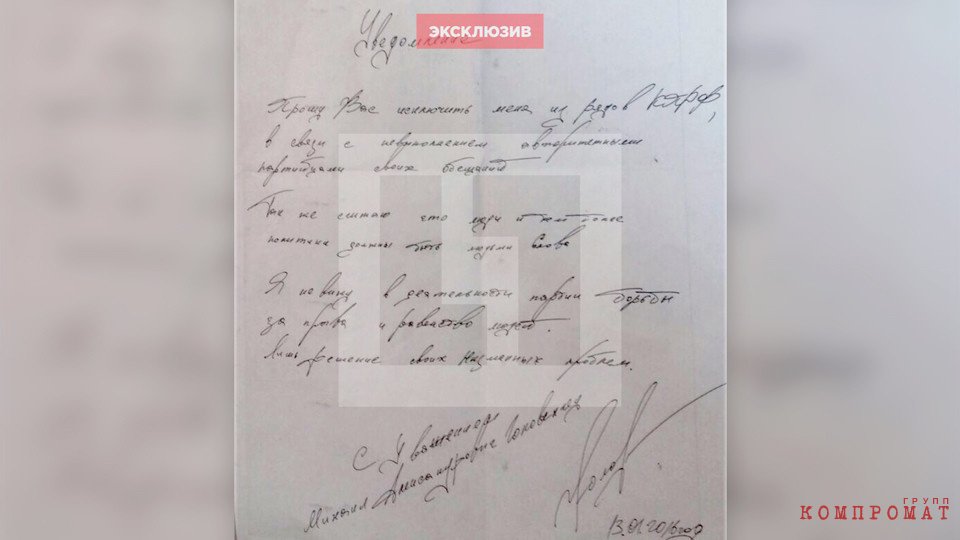 ЭКСКЛЮЗИВ
Уведомление
Прошу Вас исключить меня из рядов КПРФ,
в связи с невыполнением авторитетными
партийцами своих обещаний
Так же считаю что люди и тем более
политики должны быть людьми Слова
Я не вижу в деятельности партии борьбы
за права и равенство людей.
Лишь решение своих низменных проблем.
С Уважением
Михаил Александрович
13.01.2016 год
ГРУПП
КОМПРОМАТ